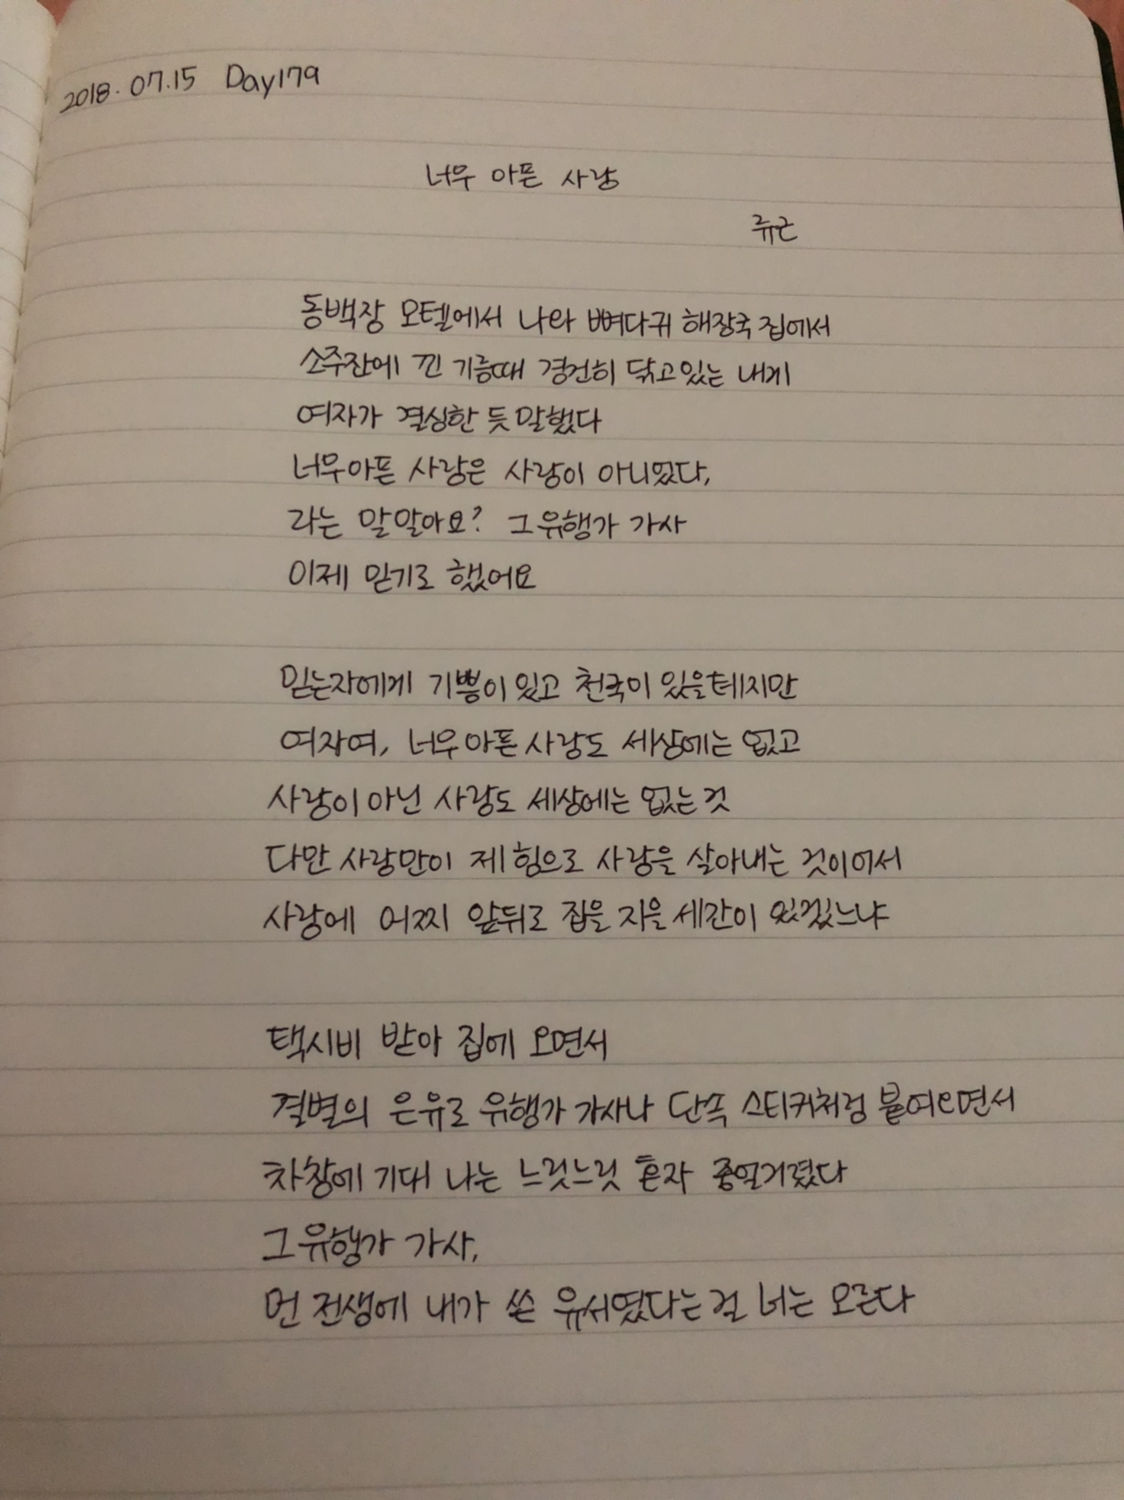 2018.07.15 Day179
너무 아픈 사랑
류근
동백장 모텔에서 나와 뼈다귀 해장국 집에서
소주잔에 낀 기름때 경건히 닦고있는 내게
여자가 결심한 듯 말했다
너무아픈 사랑은 사랑이 아니었다,
라는 말알아요? 그유행가 가사
이제 믿기로 했어요
믿는자에게 기쁨이 있고 천국이 있을테지만
여자여, 너무아픈 사랑도 세상에는 없고
사랑이 아닌 사랑도 세상에는 없는 것
다만 사랑만이 제 힘으로 사랑을 살아내는 것이어서
사랑에 어찌 앞뒤로 집을 지을 세간이 있겠느냐
택시비 받아 집에 오면서
결별의 은유로 유행가 가사나 단속 스티커처럼 붙여오면서
차창에 기대 나는 느릿느릿 혼자 중얼거렸다
그 유행가 가사,
먼 전생에 내가 쓴 유서였다는 걸 너는 모른다